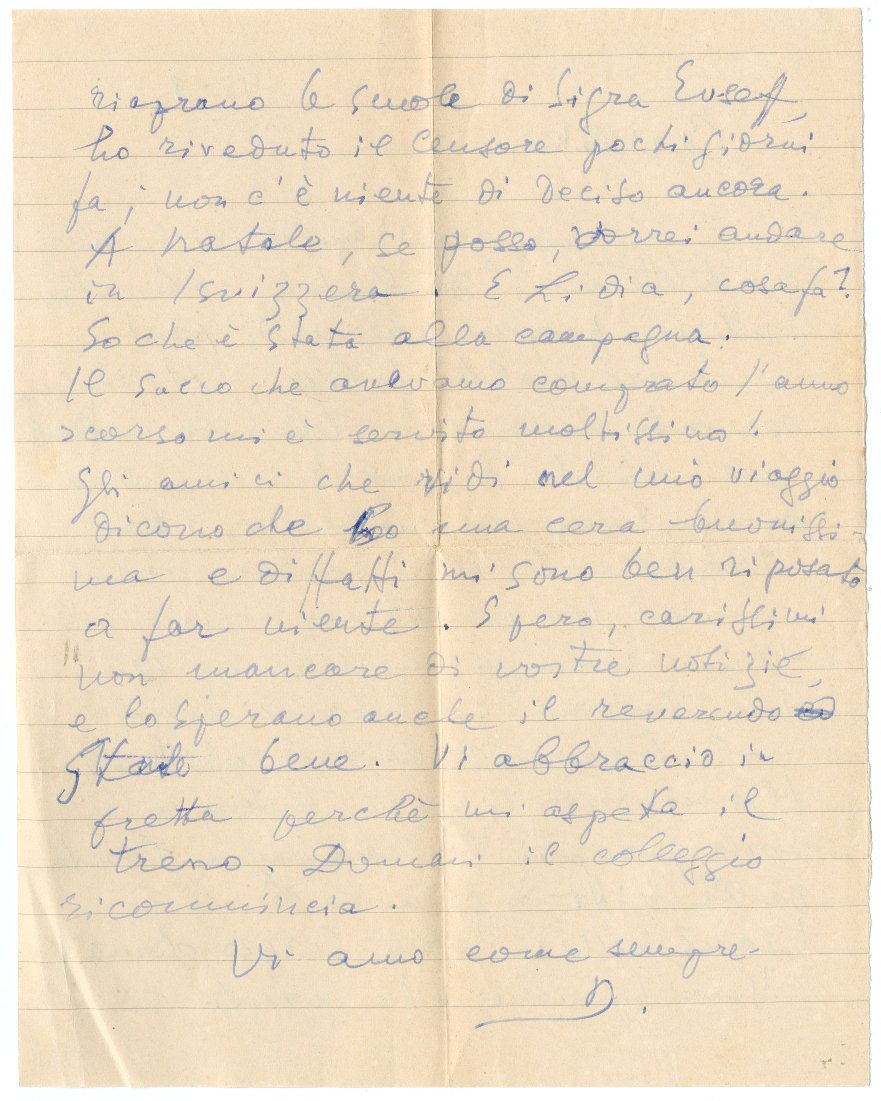 riaprano le scuole di Sigra Eusef,
ho riveduto il Censore pochi giorni
fa; non c'è niente di deciso ancora.
A Natale, se posso, vorrei andare
in Isvizzera. E Lidia, cosa fa?
So che è stata alla campagna.
Il sacco che avevamo comprato l'anno
scorso mi è servito moltissimo!
Gli amici che vidi nel mio viaggio
dicono che ho una cera buonissi-
ma e diffatti mi sono ben riposato
a far niente. Spero, carissimi
non mancare di vostre notizie,
e lo sperano anche il reverendo
Stato bene. Vi abbraccio in
fretta perchè mi aspetta il
treno. Domani il colleggio
ricomincia.
Vi amo come sempre.
D.